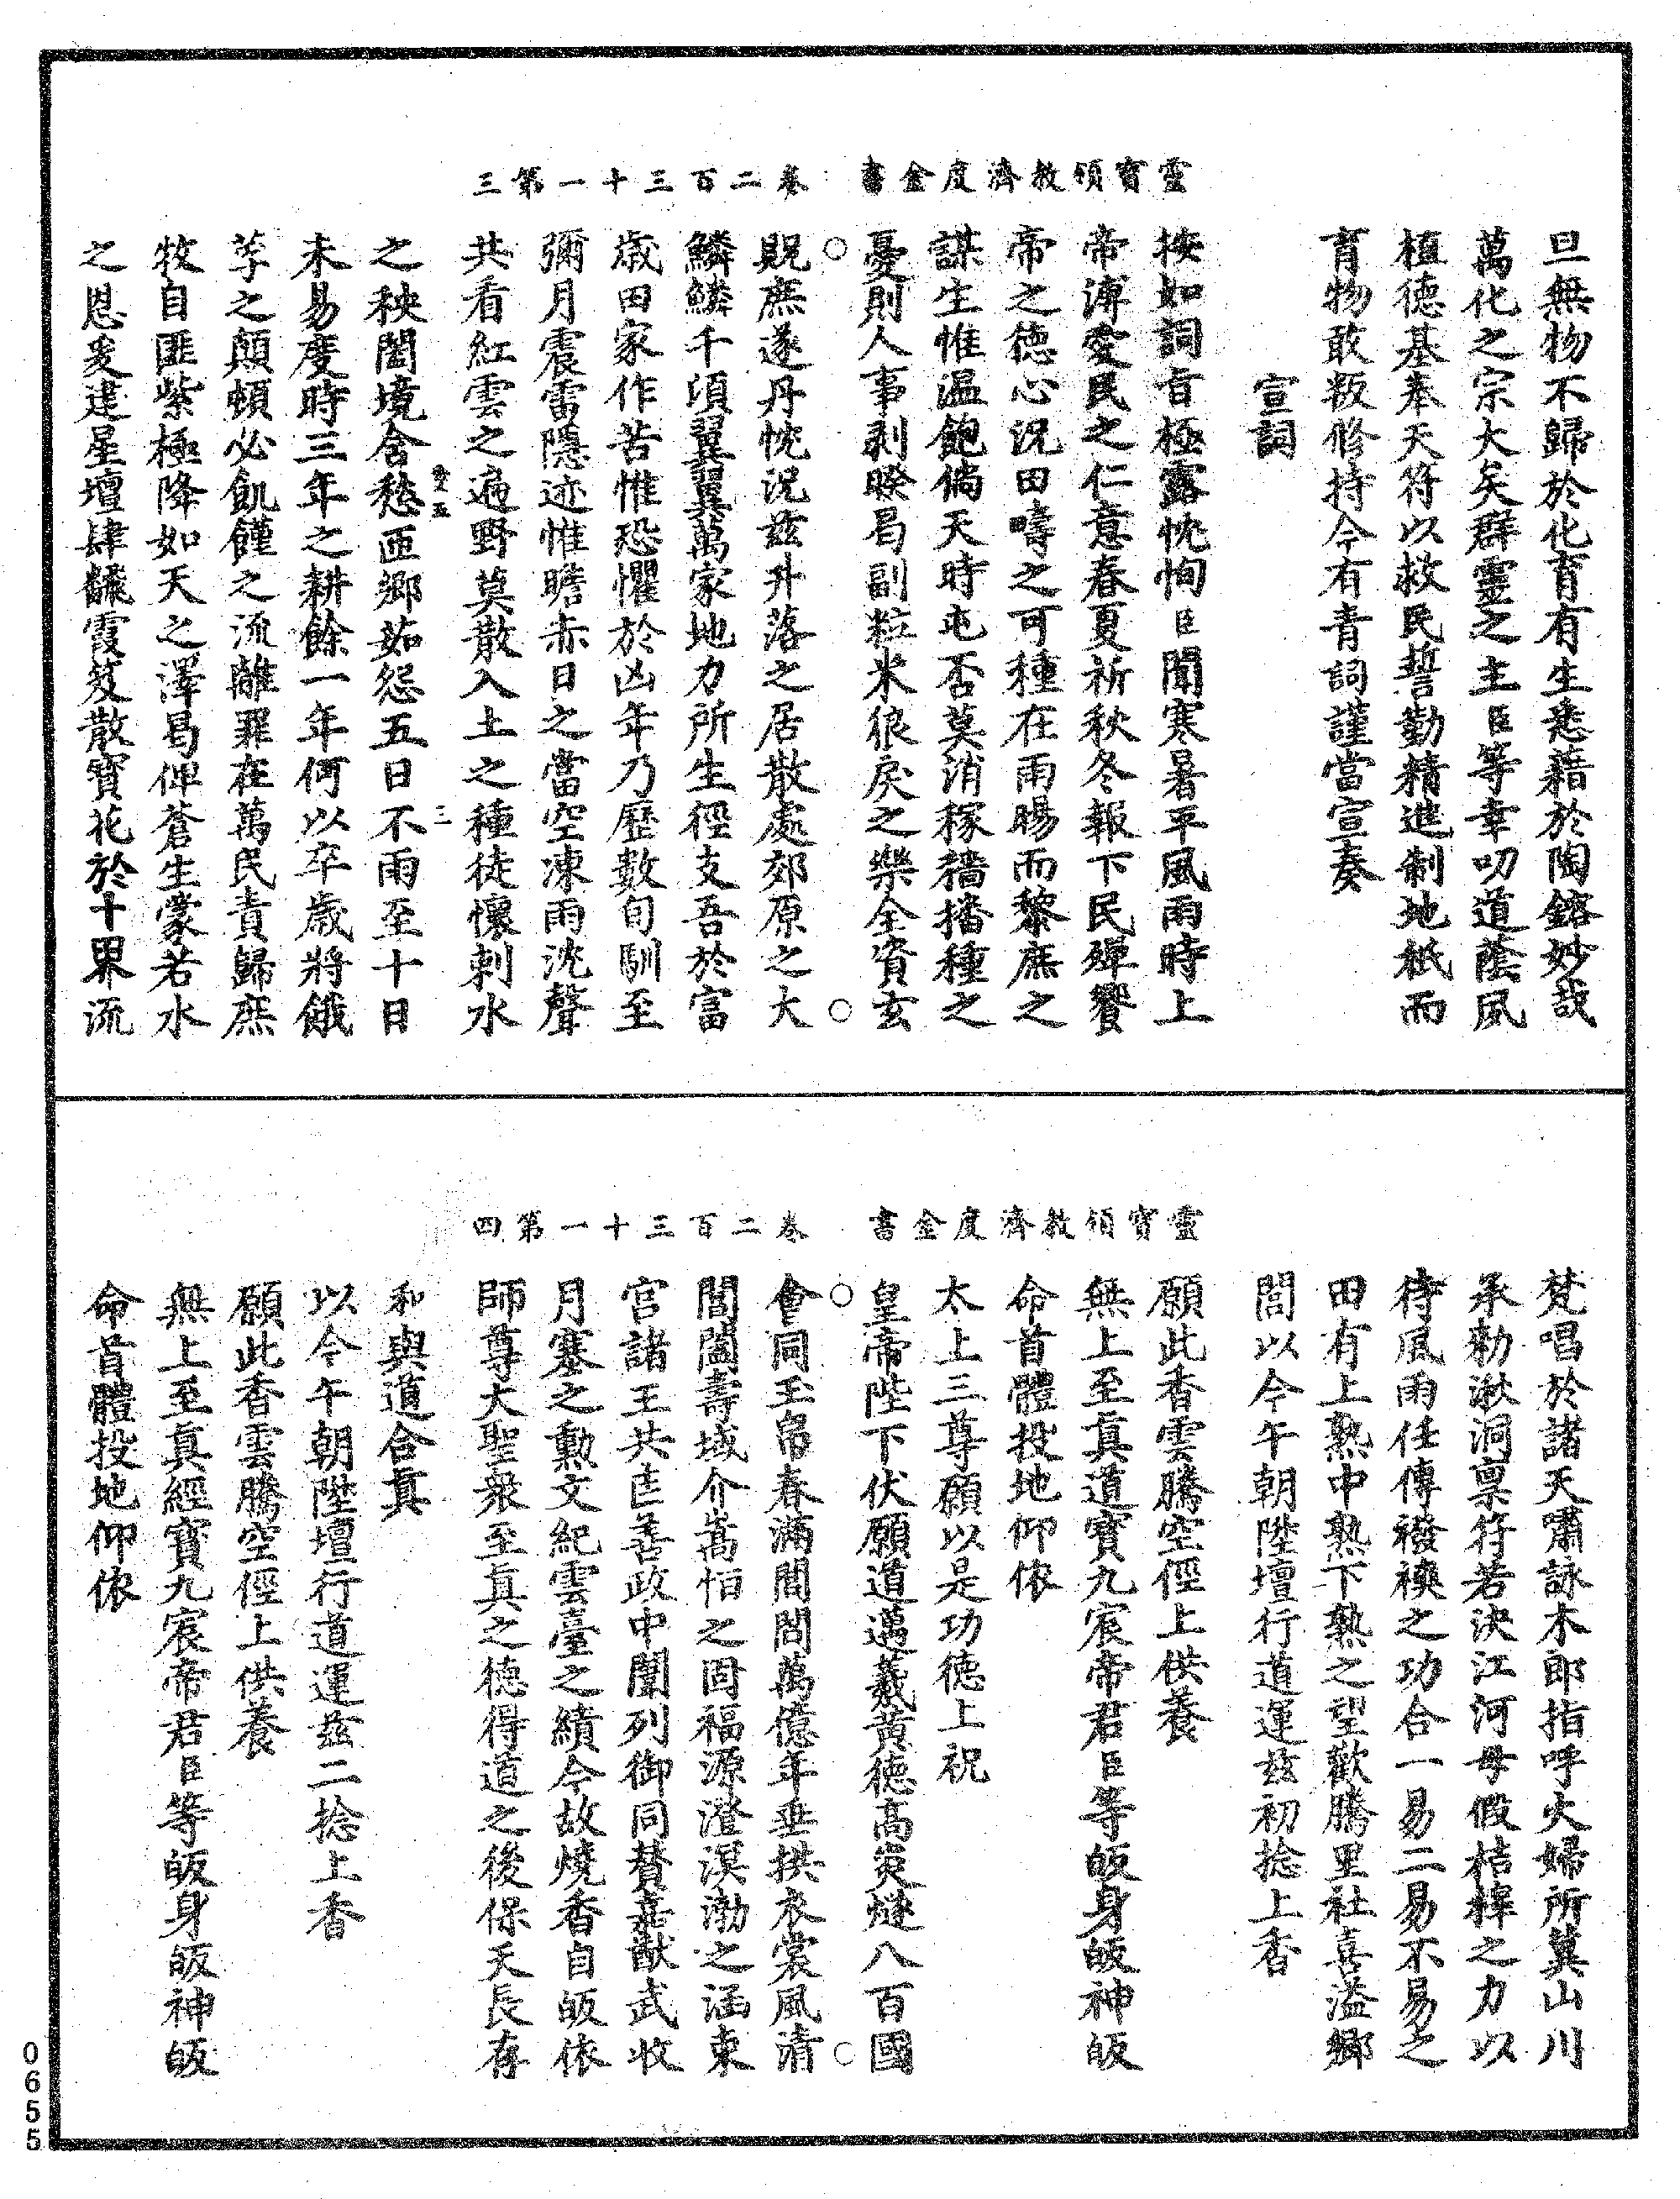 靈寶領教濟度金書　卷二百三十一第三
旦無物不歸於化育有生悉藉於陶鎔妙哉
萬化之宗大矣群靈之主臣等幸叨道蔭夙
植德基奉天符以救民誓勤精進制地祇而
育物敢叛修持今有青詞謹當宣奏
宣詞
按如詞旨極露忱恂臣聞寒暑平風雨時上
帝溥愛民之仁意春夏祈秋冬報下民殫饗
帝之德心況田疇之可種在雨暘而黎庶之
謀生惟温飽倘天時屯否莫消稼穡播種之
憂則人事剥暌曷副粒米狼戾之樂全資玄
貺庶遂丹忱況兹升落之居散處郊原之大
鱗鱗千湏翼翼萬家地力所生徑支吾於富
歲田家作苦惟恐懼於凶年乃歷數旬馴至
彌月震雷隱迹惟瞻赤日之當空凍雨沈聲
共看紅雲之遍野莫散入土之種徒懷剌水
之秧闔境含愁匝鄉茹怨五日不雨至十日
未易度時三年之耕餘一年何以卒歲將餓
莩之顛頓必飢饉之流離罪在萬民責歸庶
牧自匪紫極降如天之澤曷俾蒼生蒙若水
之恩爰建星壇肆馡霞笈散寶花於十界流
靈寶領教濟度金書　卷二百三十一第四
梵唱於諸天嘯詠木郎指呼火婦所冀山川
承勑湫洞禀符若決江河毋假桔槹之力以
待風雨任傳襏襫之功合一易二易不易之
田有上熟中熟下熟之望歡騰里社喜溢鄉
閭以今午朝陞壇行道運兹初捻上香
願此香雲騰空徑上供養
無上至真道寶九宸帝君臣等皈身皈神皈
命首體投地仰依
太上三尊願以是功德上祝
皇帝陛下伏願道邁羲黄德高炎燧八百國
會同玉帛春滿閭閻萬億年垂拱衣裳風清
閶闔壽域介嵩恒之固福源澄溟渤之涵東
宫諸王共恢善政中闈列御同賛嘉猷武收
月寨之勳文紀雲臺之績今故燒香自皈依
師尊大聖衆至真之德得道之後保天長存
和與道合真
以今午朝陞壇行道運兹二捻上香
願此香雲騰空徑上供養
無上至真經寶九宸帝君臣等皈身皈神皈
命首體投地仰依
0655